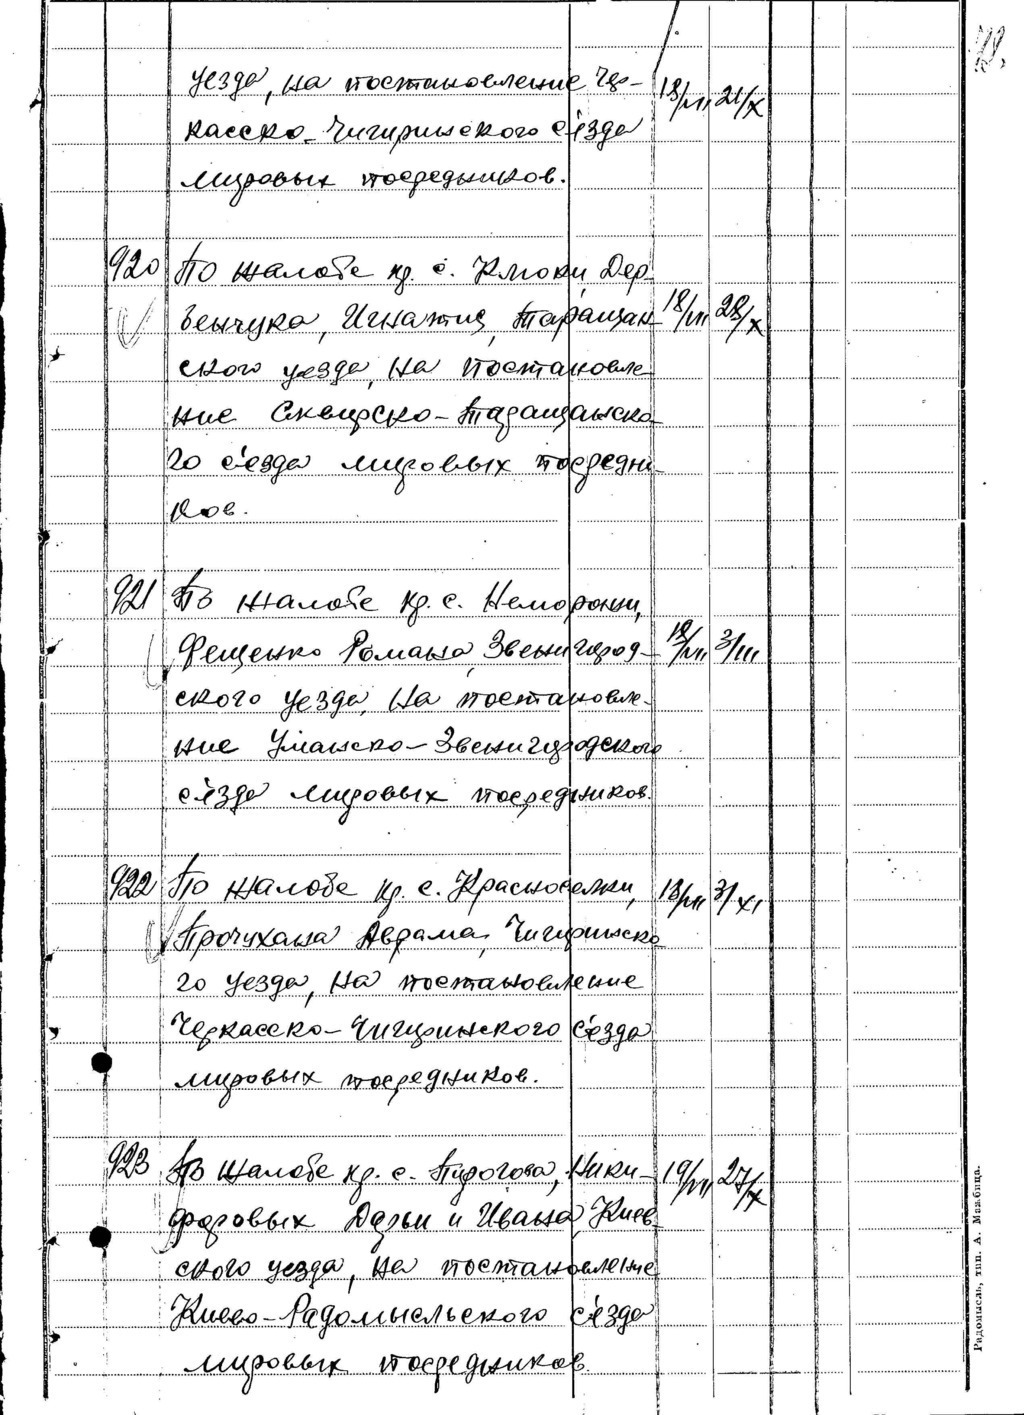 уезда, на постановление Чер- 18/VII 21/X
касско-Чигиринского с'езда
мировых посредников.
920 По жалобе кр. с. Клюки, Дер-
бенчука, Игнатия, Таращан- 18/VII 28/X
ского уезда, на постановле-
ние Сквирско-Таращанско-
го с'езда мировых посредни-
ков.
921 По жалобе кр. с. Неморожи,
Фещенко Романа, Звенигород- 18/VII 3/III
ского уезда, на постановле-
ние Уманско-Звенигородского
с'езда мировых посредников.
922 По жалобе кр. с. Красноселки, 18/VII 3/XI
Прочухана Аврама, Чигиринско-
го уезда, на постановление
Черкасско-Чигиринского с'езда
мировых посредников.
923 По жалобе кр. с. Пирогова, Ники- 19/VII 27/X
форовых Дарьи и Ивана, Киев-
ского уезда, на постановление
Киево-Радомысльского с'езда
мировых посредников.
Радомысль, тип. А. Мажбица.